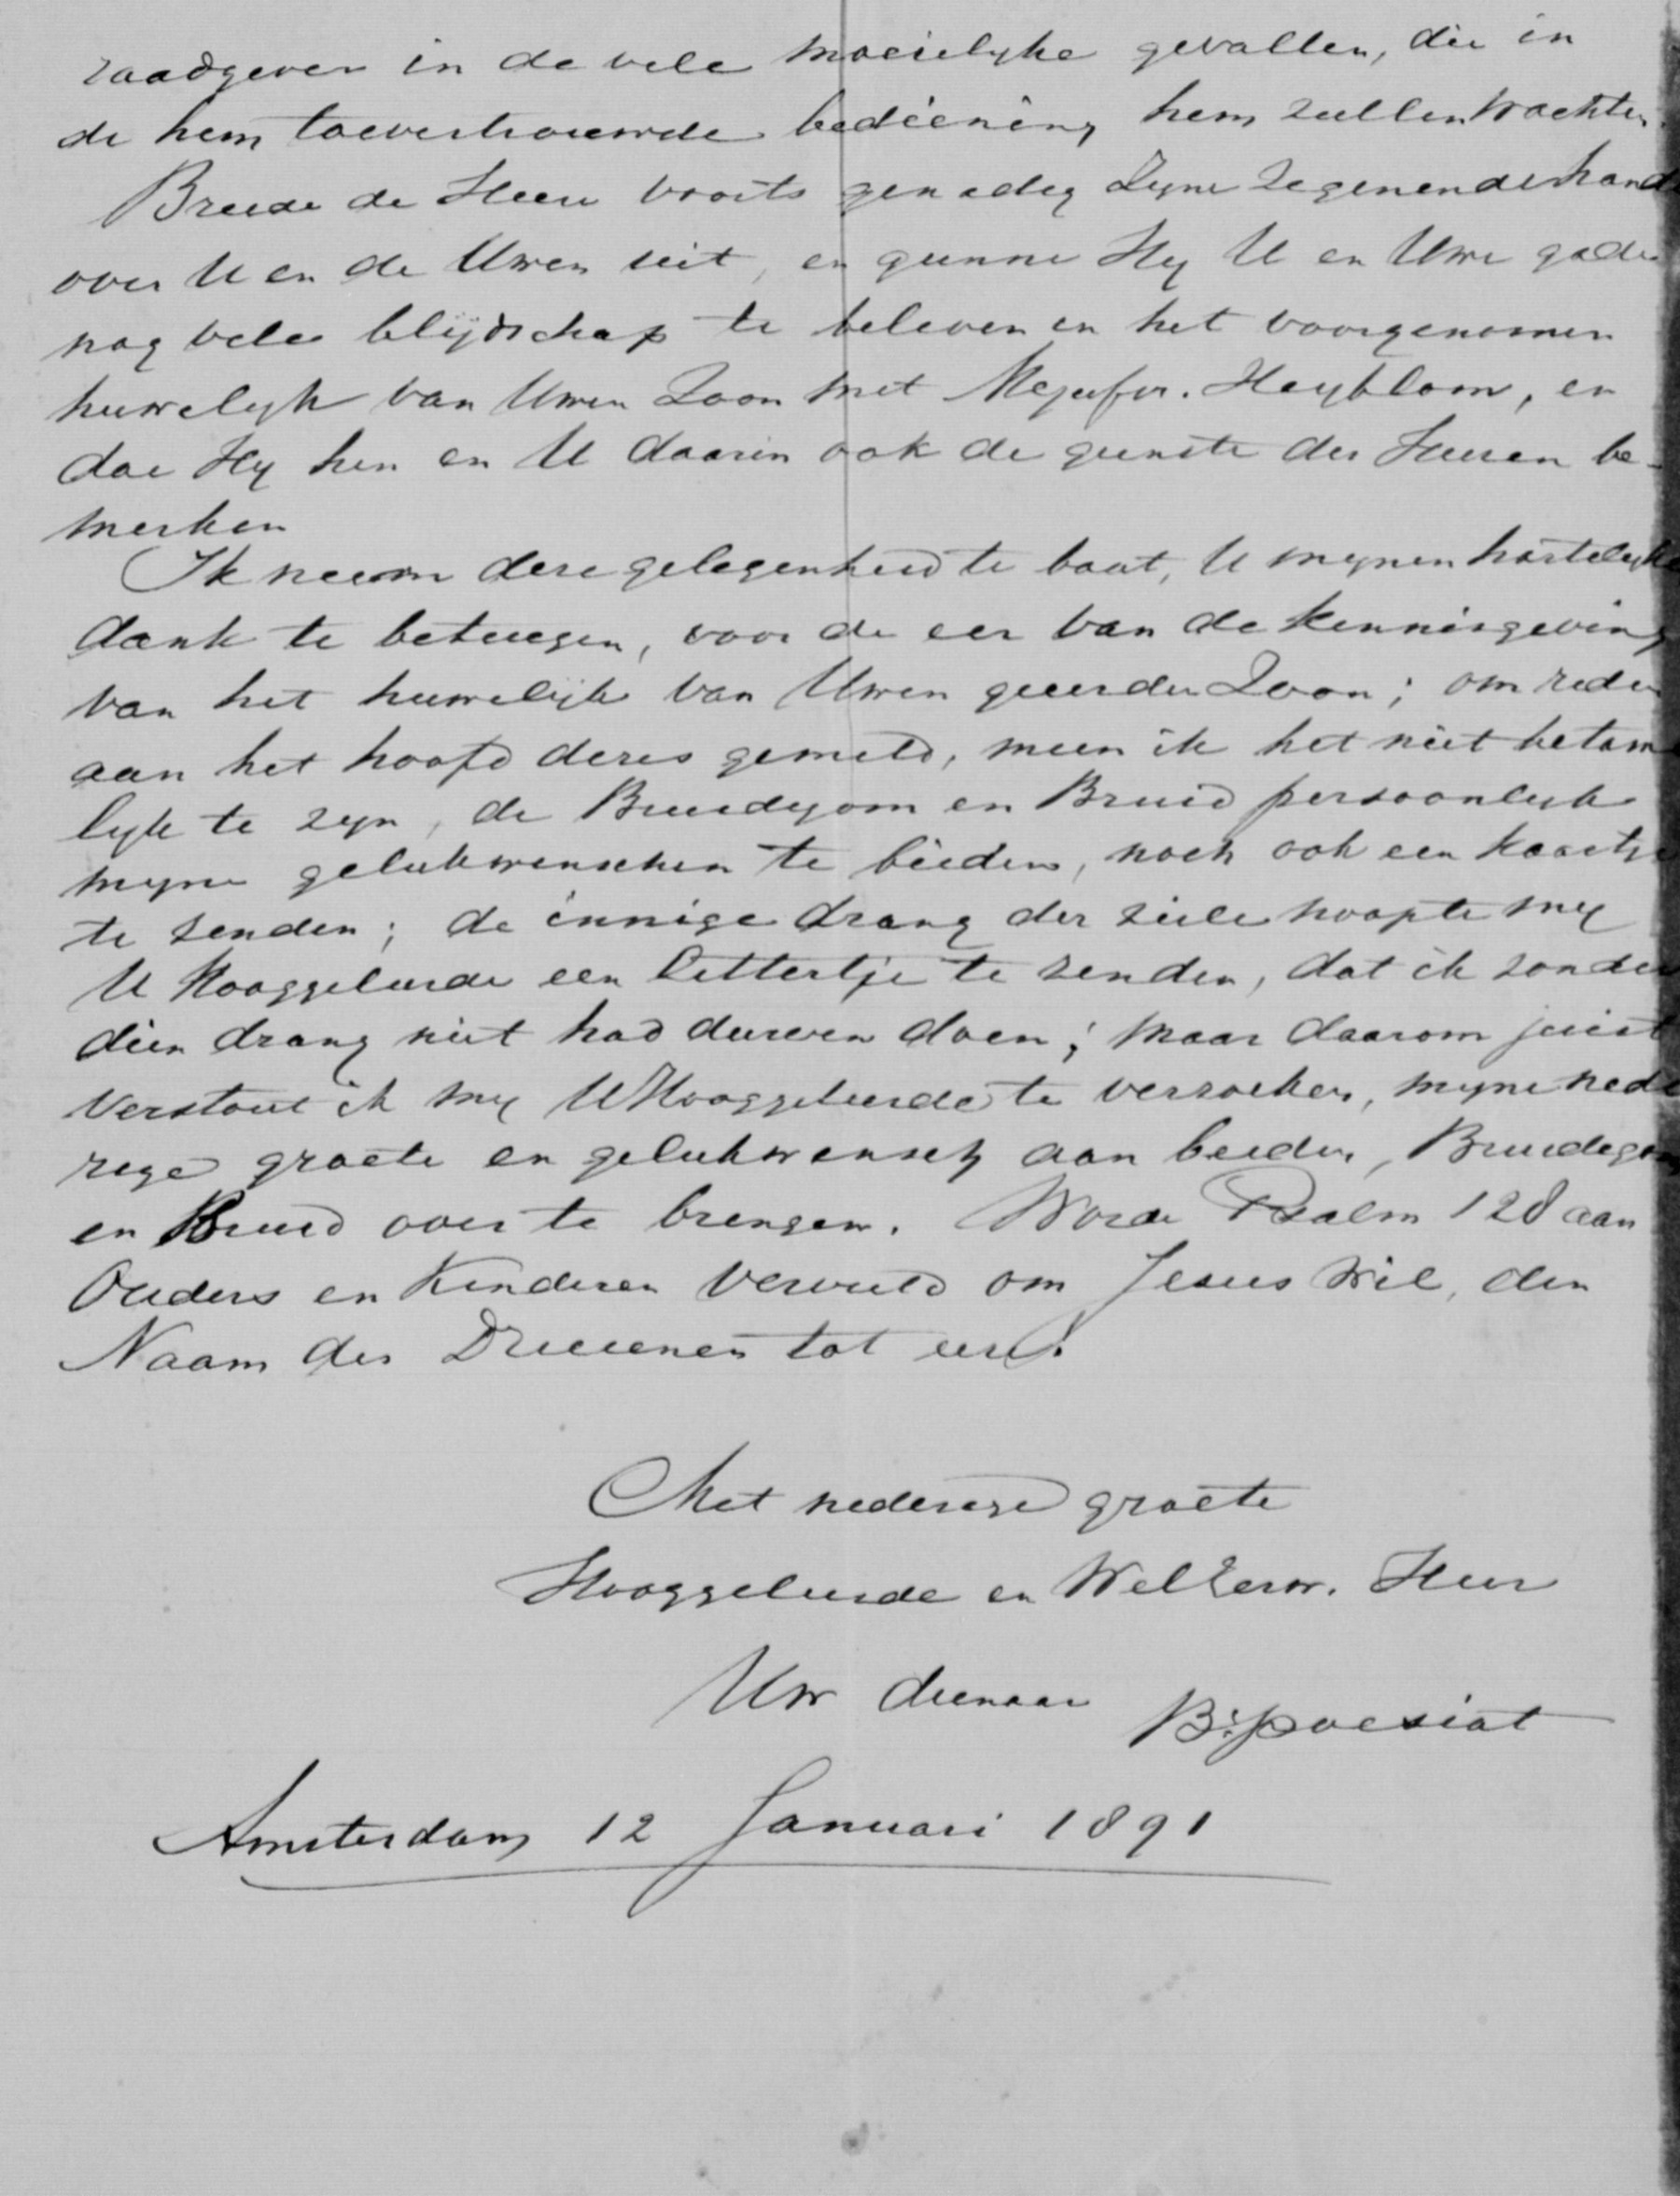 raadgever in de vele moeielyke gevallen, die in
de hem toevertrouwde bediening hem zullen wachten.
Breide de Heere voorts genadig Zyne zegenende hand
over U en de Uwen uit, en gunne Hy U en Uwe gade
nog vele blijdschap te beleven en het voorgenomen
huwelyk van Uwen Zoon met Mejufvr. Heyblom, en
doe Hy hen en U daarin ook de gunste des Heeren be-
merken
Ik neem deze gelegenheid te baat, U mynen hartelyke
dank te betuigen, voor de eer van de kennisgeving
van het huwelijk van Uwen geeerden Zoon; om reden
aan het hoofd dezes gemeld, meen ik het niet betam
lyk te zyn, de Bruidegom en Bruid persoonlyk
myne gelukwenschen te bieden, noch ook een kaartje
te zenden; de innige drang der ziele noopte my
U Hooggeleerde een lettertje te zenden, dat ik zonder
dien drang niet had durven doen; maar daarom juist
verstout ik my UHooggeleerde te verzoeken, myne nede
rige groete en gelukwensch aan beiden, Bruidegom
en Bruid over te brengen. Worde Psalm 128 aan
Ouders en Kinderen vervuld om Jesus wil, den
Naam des Drieeenen tot eere.
Met nederige groete
Hooggeleerde en WelEerw. Heer
Uw dienaar B. Poesiat
Amsterdam 12 Januari 1891